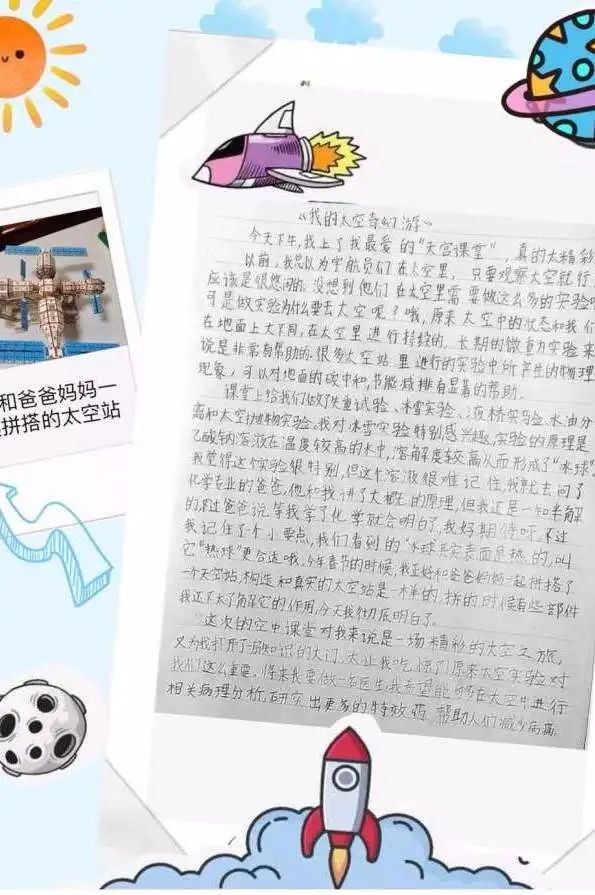 《我的太空奇幻游》
今天下午,我上了我最爱的“天宫课堂”,真的太精彩
以前,我总以为宇航员们在太空里,只要观察太空就行,
应该是很悠闲的。没想到他们在太空里需要做这么多的实验
可是做实验为什么要去太空呢?哦,原来太空中的状态和我们
在地面上大不同,在太空里进行持续的、长期的微重力实验来
说是非常有帮助的。很多太空站里进行的实验中所产生的物理
现象,可以对地面的碳中和,节能减排有显著的帮助。
课堂上给我们做了失重试验、冰雪实验、液桥实验、水油分
离和太空抛物实验。我对冰雪实验特别感兴趣,实验的原理是
乙酸钠溶液在温度较高的水中,溶解度较高从而形成了“冰球”
我觉得这个实验很特别,但这个溶液很难记住,我就去问了
化学专业的爸爸,他和我讲了大概的原理,但我还是一知半解
的,不过爸爸说,等我学了化学就会明白了,我好期待呀,不过
我记住了一个小要点,我们看到的“冰球”其实表面是热的,叫
它“热球”更合适哦。今年春节的时候,我正好和爸爸妈妈一起拼搭了
一个天空站,构造和真实的太空站是一样的,拼的时候有些部件
我还不太了解它的作用,今天我彻底明白了。
这次的空中课堂对我来说是一场精彩的太空之旅,
又为我打开了一扇知识的大门,太让我吃惊了!原来太空实验对
我们这么重要。将来我要做一名医生,我希望能够在太空中进行
相关病理分析,研究出更多的特效药,帮助人们减少病痛
和爸爸妈妈一
拼搭的太空站